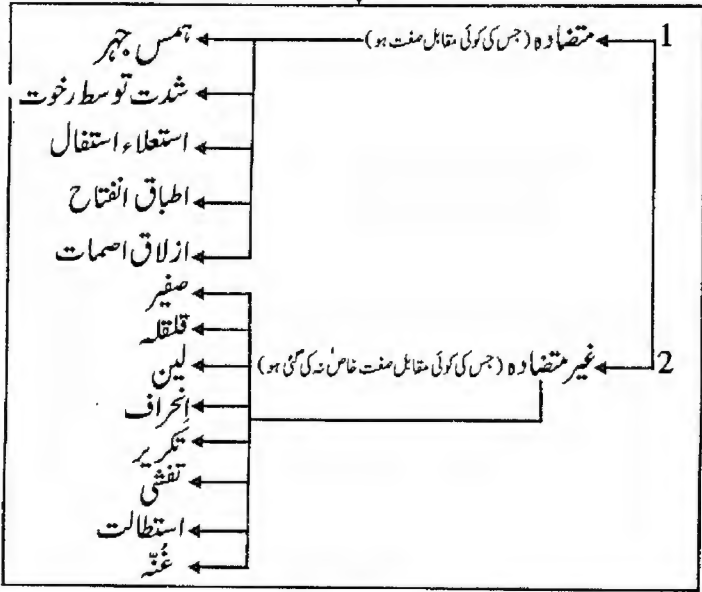 1 متضادہ (جس کی کوئی مقابل صفت ہو)
ہمس جہر
شدت توسط رخوت
استعلاء استفال
اطباق انفتاح
ازلاق اصمات
2 غیر متضادہ (جس کی کوئی مقابل صفت خاص نہ کی گئی ہو)
صفیر
قلقلہ
لین
اِنحراف
تکریر
تفشی
استطالت
غُنّہ